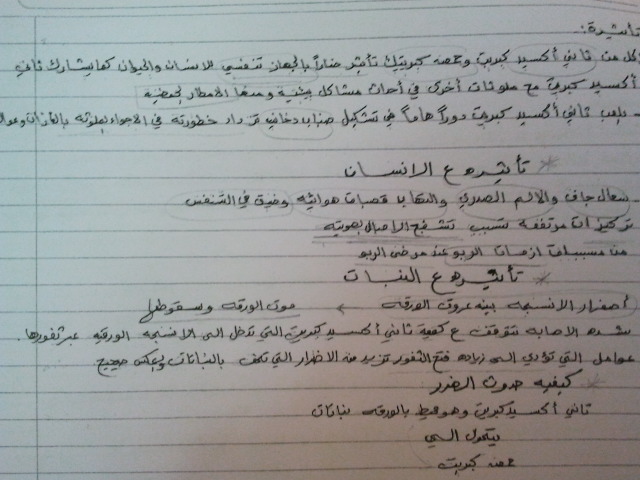 تأثيره:
لكل من ثاني أكسيد كبريت وحمض كبريتيك تأثير ضاراً بالجهاز تنفسي للانسان والحيوان كما يشارك ثاني
أكسيد كبريت مع ملوثات أخرى في أحداث مشاكل بيئية ومنها الامطار الحمضية
- يلعب ثاني أكسيد كبريت دوراً هاماً في تشكيل ضباب دخاني تزداد خطورته في الاجواء الملوثه بالغازات
* تأثيره ع الانسان
- سعال جاف والالم الصدري والتهابا قصبات هوائيه وضيق في التنفس
تركيز اتا مرتفعه تسبب تشنج الاحبال الصوتيه
من مسببات ازمات الربو عند مرضى الربو
* تأثيره ع النبات
أصفرار الانسجه بينه عروق الورقه ← موت الورقه وسقوطها
شده الاصابه تتوقف ع كمية ثاني أكسيد كبريت التي تدخل الى الانسجه الورقيه عبر ثغورها.
عوامل التي تؤدي الى زياده فتح الثغور تزيد من الاضرار التي تلحق بالنباتات والعكس صحيح
* كيفيه حدوث الضرر
ثاني أكسيد كبريت وهو محيط بالورقه نباتات
يتحول الى
حمض كبريت